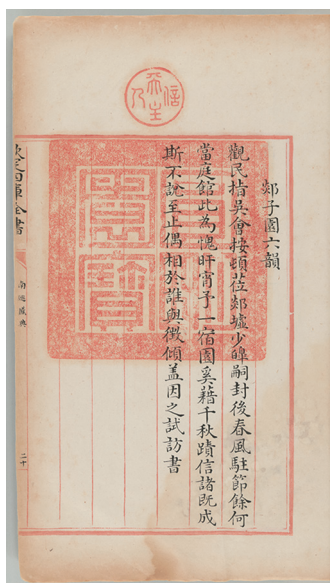 郯子園六韻
觀民指吳會接頓莅郯墟少皞嗣封後春風駐節餘何
當庭館此為愧旰宵予一宿園奚藉千秋蹟信諸既成
斯不說至止偶相於誰與徵傾蓋因之試訪書
欽定四庫全書
南巡盛典
二十
信天主人